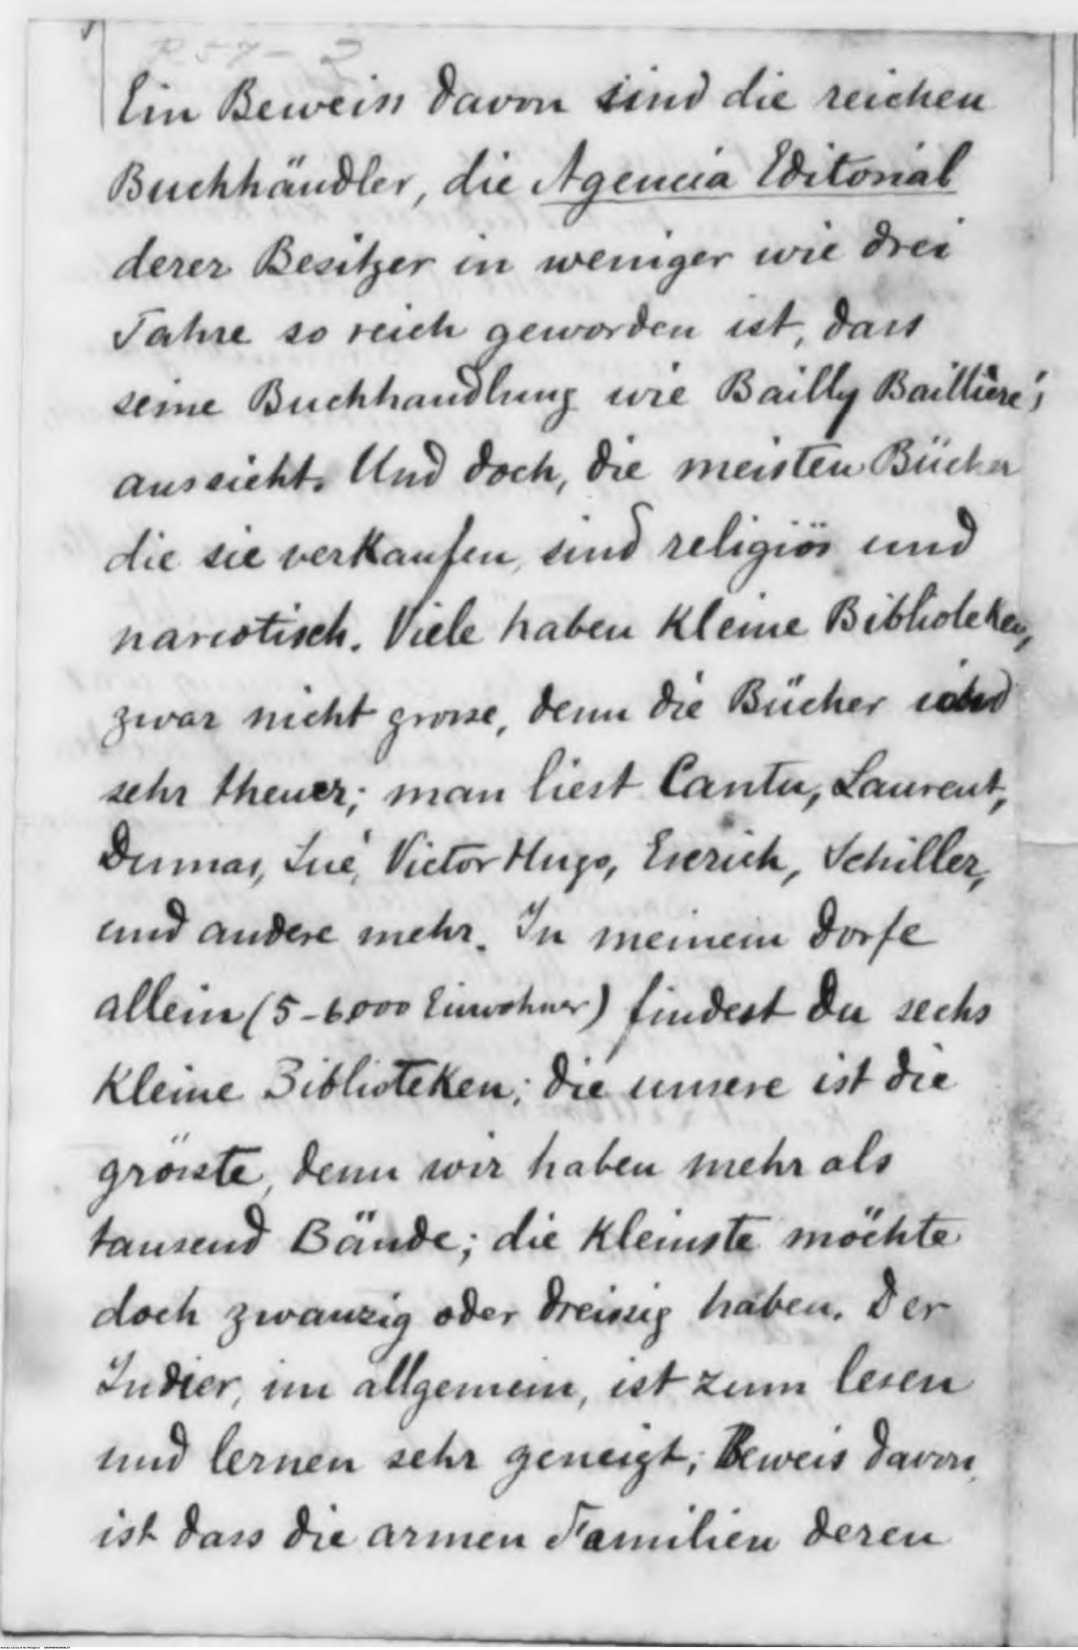 Ein Beweiss davon sind die reichen
Buchhändler, die Agencia Editorial
derer Besitzer in weniger wie drei
Jahre so reich geworden ist, dass
seine Buchhandlung wie Bailly Baillière's
aussieht. Und doch, die meisten Bücher
die sie verkaufen, sind religiös und
narcotisch. Viele haben kleine Biblioteken,
zwar nicht grosse, denn die Bücher sind
sehr theuer; man liest Cantu, Laurent,
Dumas, Sué, Victor Hugo, Escrich, Schiller,
und andere mehr. In meinem Dorfe
allein (5-6000 Einwohner) findest Du sechs
kleine Biblioteken; die unsere ist die
grösste, denn wir haben mehr als
tausend Bände; die kleinste möchte
doch zwanzig oder dreissig haben. Der
Indier, im allgemein, ist zum lesen
und lernen sehr geneigt; Beweis davon
ist dass die armen Familien deren